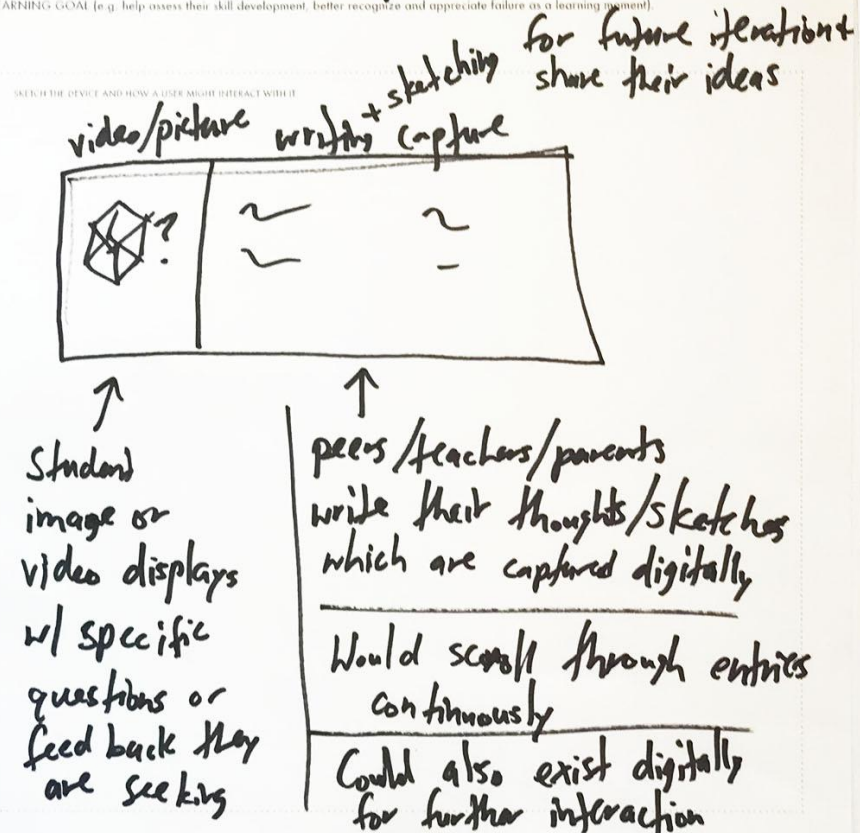 ARNING GOAL (e.g. help assess their skill development, better recognize and appreciate failure as a learning moment).
for future iteration +
share their ideas
SKETCH THE DEVICE AND HOW A USER MIGHT INTERACT WITH IT
video/picture
writing + sketching
capture
?
Student
image or
video displays
w/ specific
questions or
feedback they
are seeking
peers/teachers/parents
write their thoughts/sketches
which are captured digitally
Would scroll through entries
continuously
Could also exist digitally
for further interaction